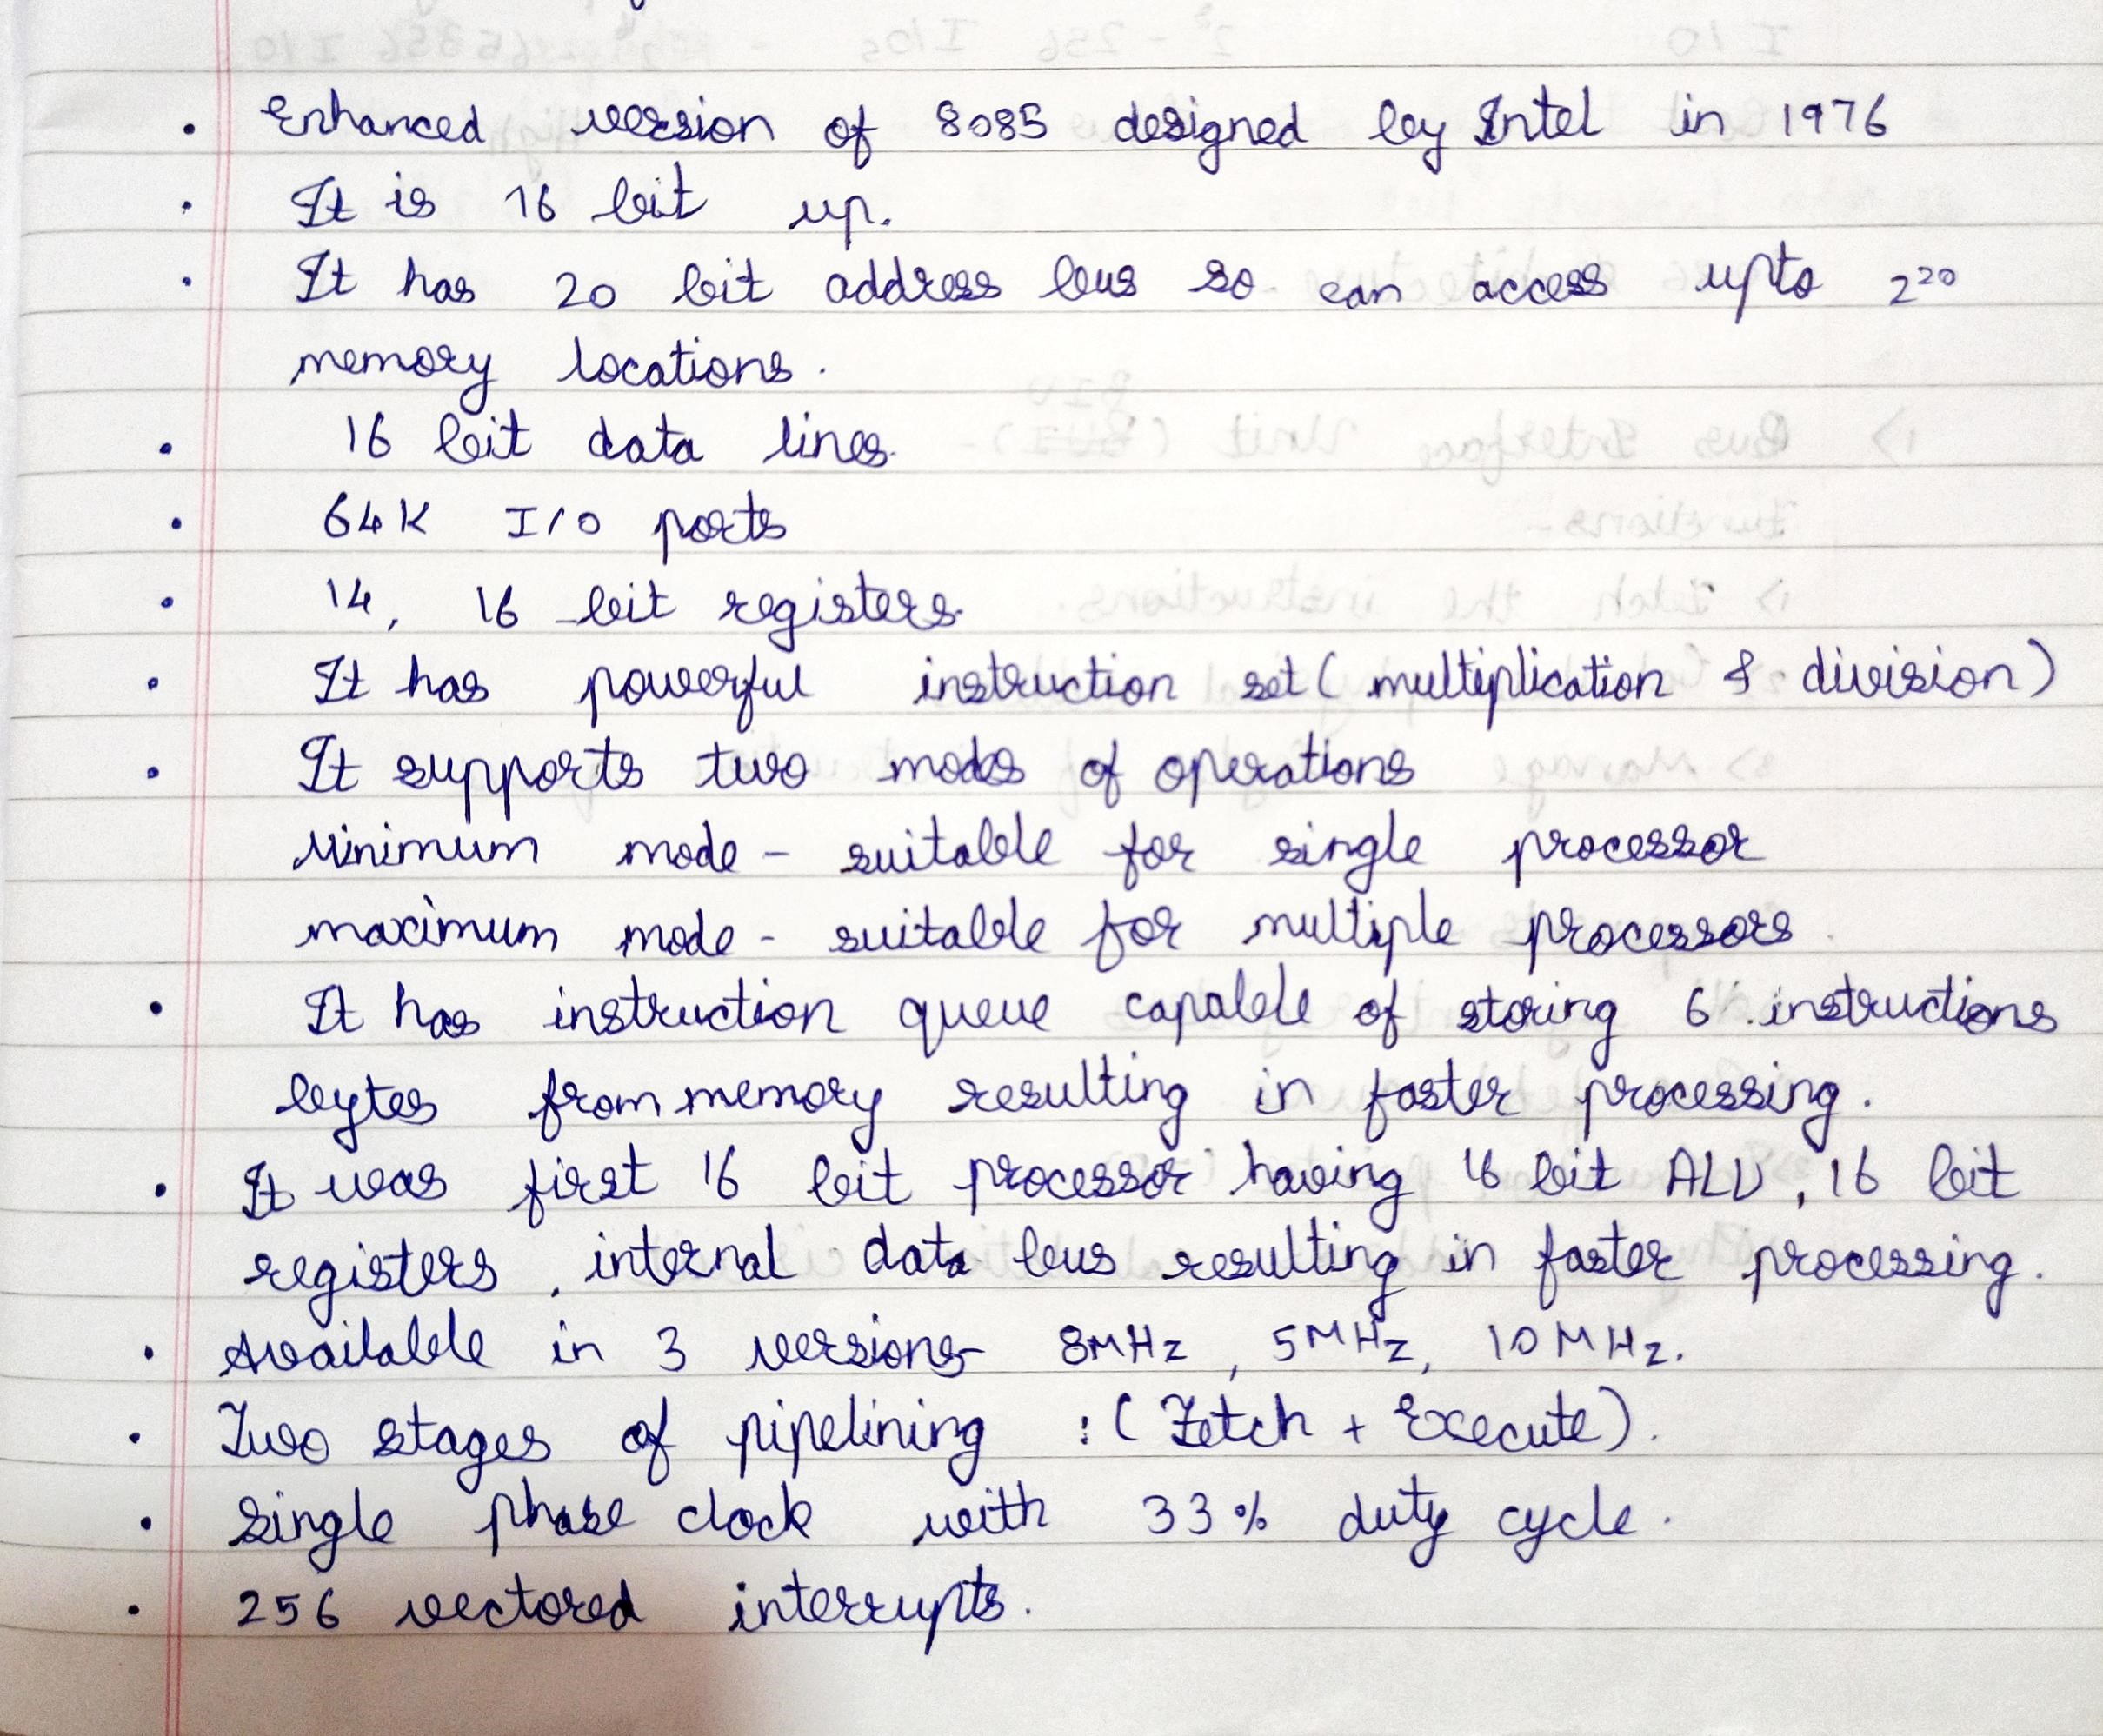 • Enhanced version of 8085 designed by Intel in 1976
• It is 16 bit up.
• It has 20 bit address bus so can access upto 2²⁰
memory locations.
• 16 bit data lines.
• 64K I/O ports
• 14, 16 bit registers.
• It has powerful instruction set (multiplication & division)
• It supports two modes of operations
Minimum mode - suitable for single processor
maximum mode - suitable for multiple processors.
• It has instruction queue capable of storing 6 instructions
bytes from memory resulting in faster processing.
• It was first 16 bit processor having 16 bit ALU, 16 bit
registers, internal data bus resulting in faster processing.
• Available in 3 versions- 8MHz, 5MHz, 10MHz.
• Two stages of pipelining : (Fetch + Execute).
• Single phase clock with 33% duty cycle.
• 256 vectored interrupts.